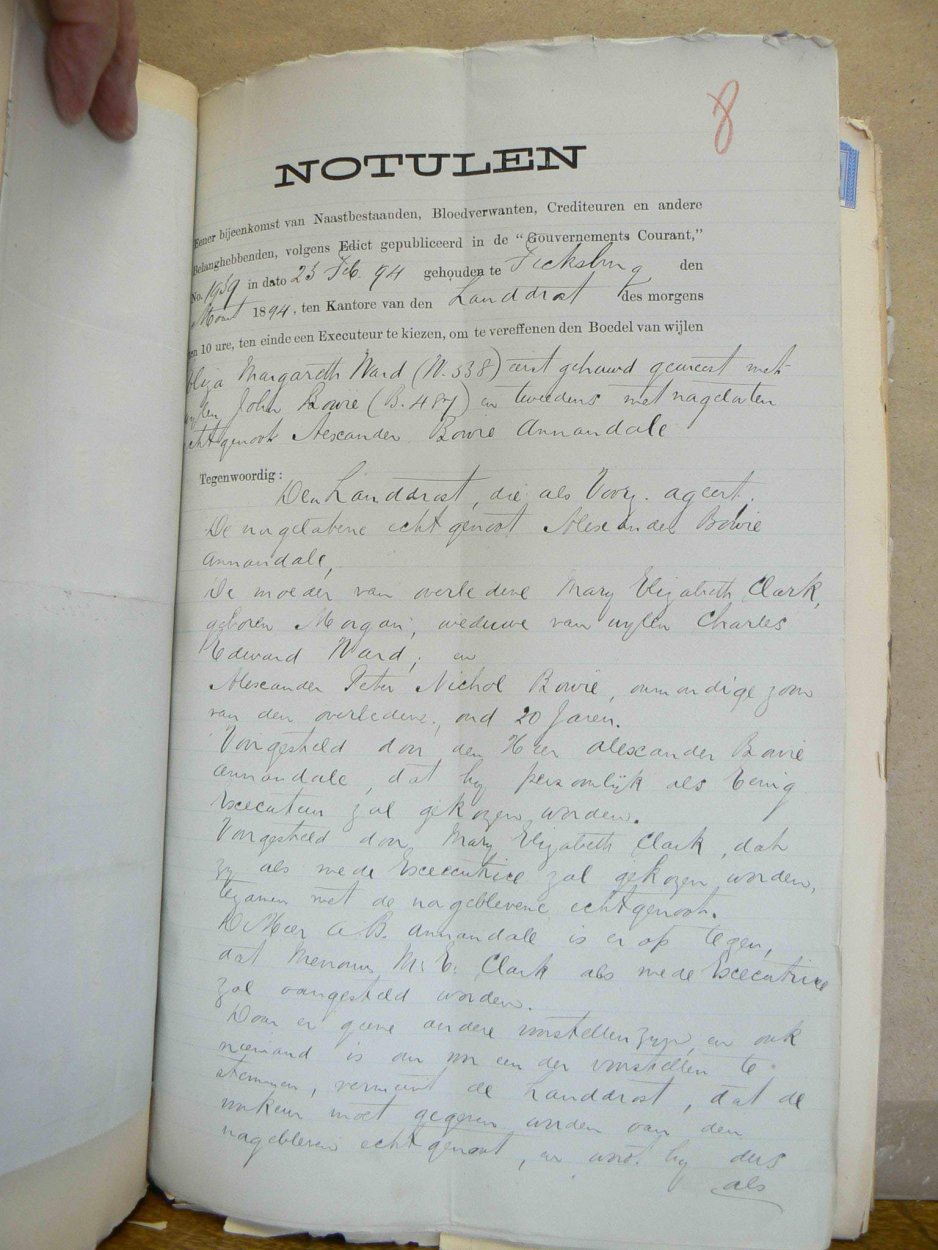 8
NOTULEN
Eener bijeenkomst van Naastbestaanden, Bloedverwanten, Crediteuren en andere
Belanghebbenden, volgens Edict gepubliceerd in de "Gouvernements Courant,"
No. 1959 in dato 23 Feb. 94 gehouden te Ficksburg den
Maart 1894, ten Kantore van den Landdrost des morgens
ten 10 ure, ten einde een Executeur te kiezen, om te vereffenen den Boedel van wijlen
Eliza Margareth Ward (W. 538) eerst gehuwd geweest met
wijlen John Bowie (B. 487) en tweedens met nagelaten
echtgenoot Alexander Bowie Annandale
Tegenwoordig:
Den Landdrost, die als Voorz. ageert.
De nagelatene echtgenoot Alexander Bowie
Annandale,
De moeder van overledene Mary Elizabeth Clark,
geboren Morgan, weduwe van wylen Charles
Edward Ward; en
Alexander Peter Nichol Bowie, onmondige zoon
van den overledene, oud 20 Jaren.
Voorgesteld door den Heer Alexander Bowie
Annandale, dat hy persoonlijk als Eenig
Executeur zal gekozen worden.
Voorgesteld door Mary Elizabeth Clark, dat
zy als mede Executrice zal gekozen worden,
tezamen met de nageblevene echtgenoot.
De Heer A. B. Annandale is er op tegen,
dat Mevrouw M. E. Clark als mede Executrice
zal aangesteld worden.
Daar er geene andere voorstellen zyn, en ook
niemand is om voor een der voorstellen te
stemmen, vermeent de Landdrost, dat de
voorkeur moet gegeven worden aan den
nagebleven echtgenoot, en word hy dus
als